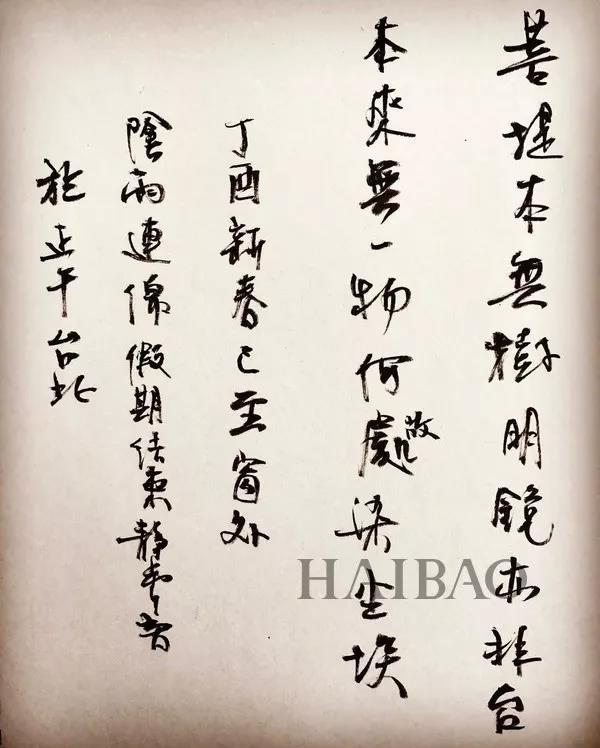 菩堤本無樹明鏡亦非台
本來無一物何處染尘埃
故
丁酉新春已至窗外
陰雨連綿假期结束静
於正午台北
HAIBAO